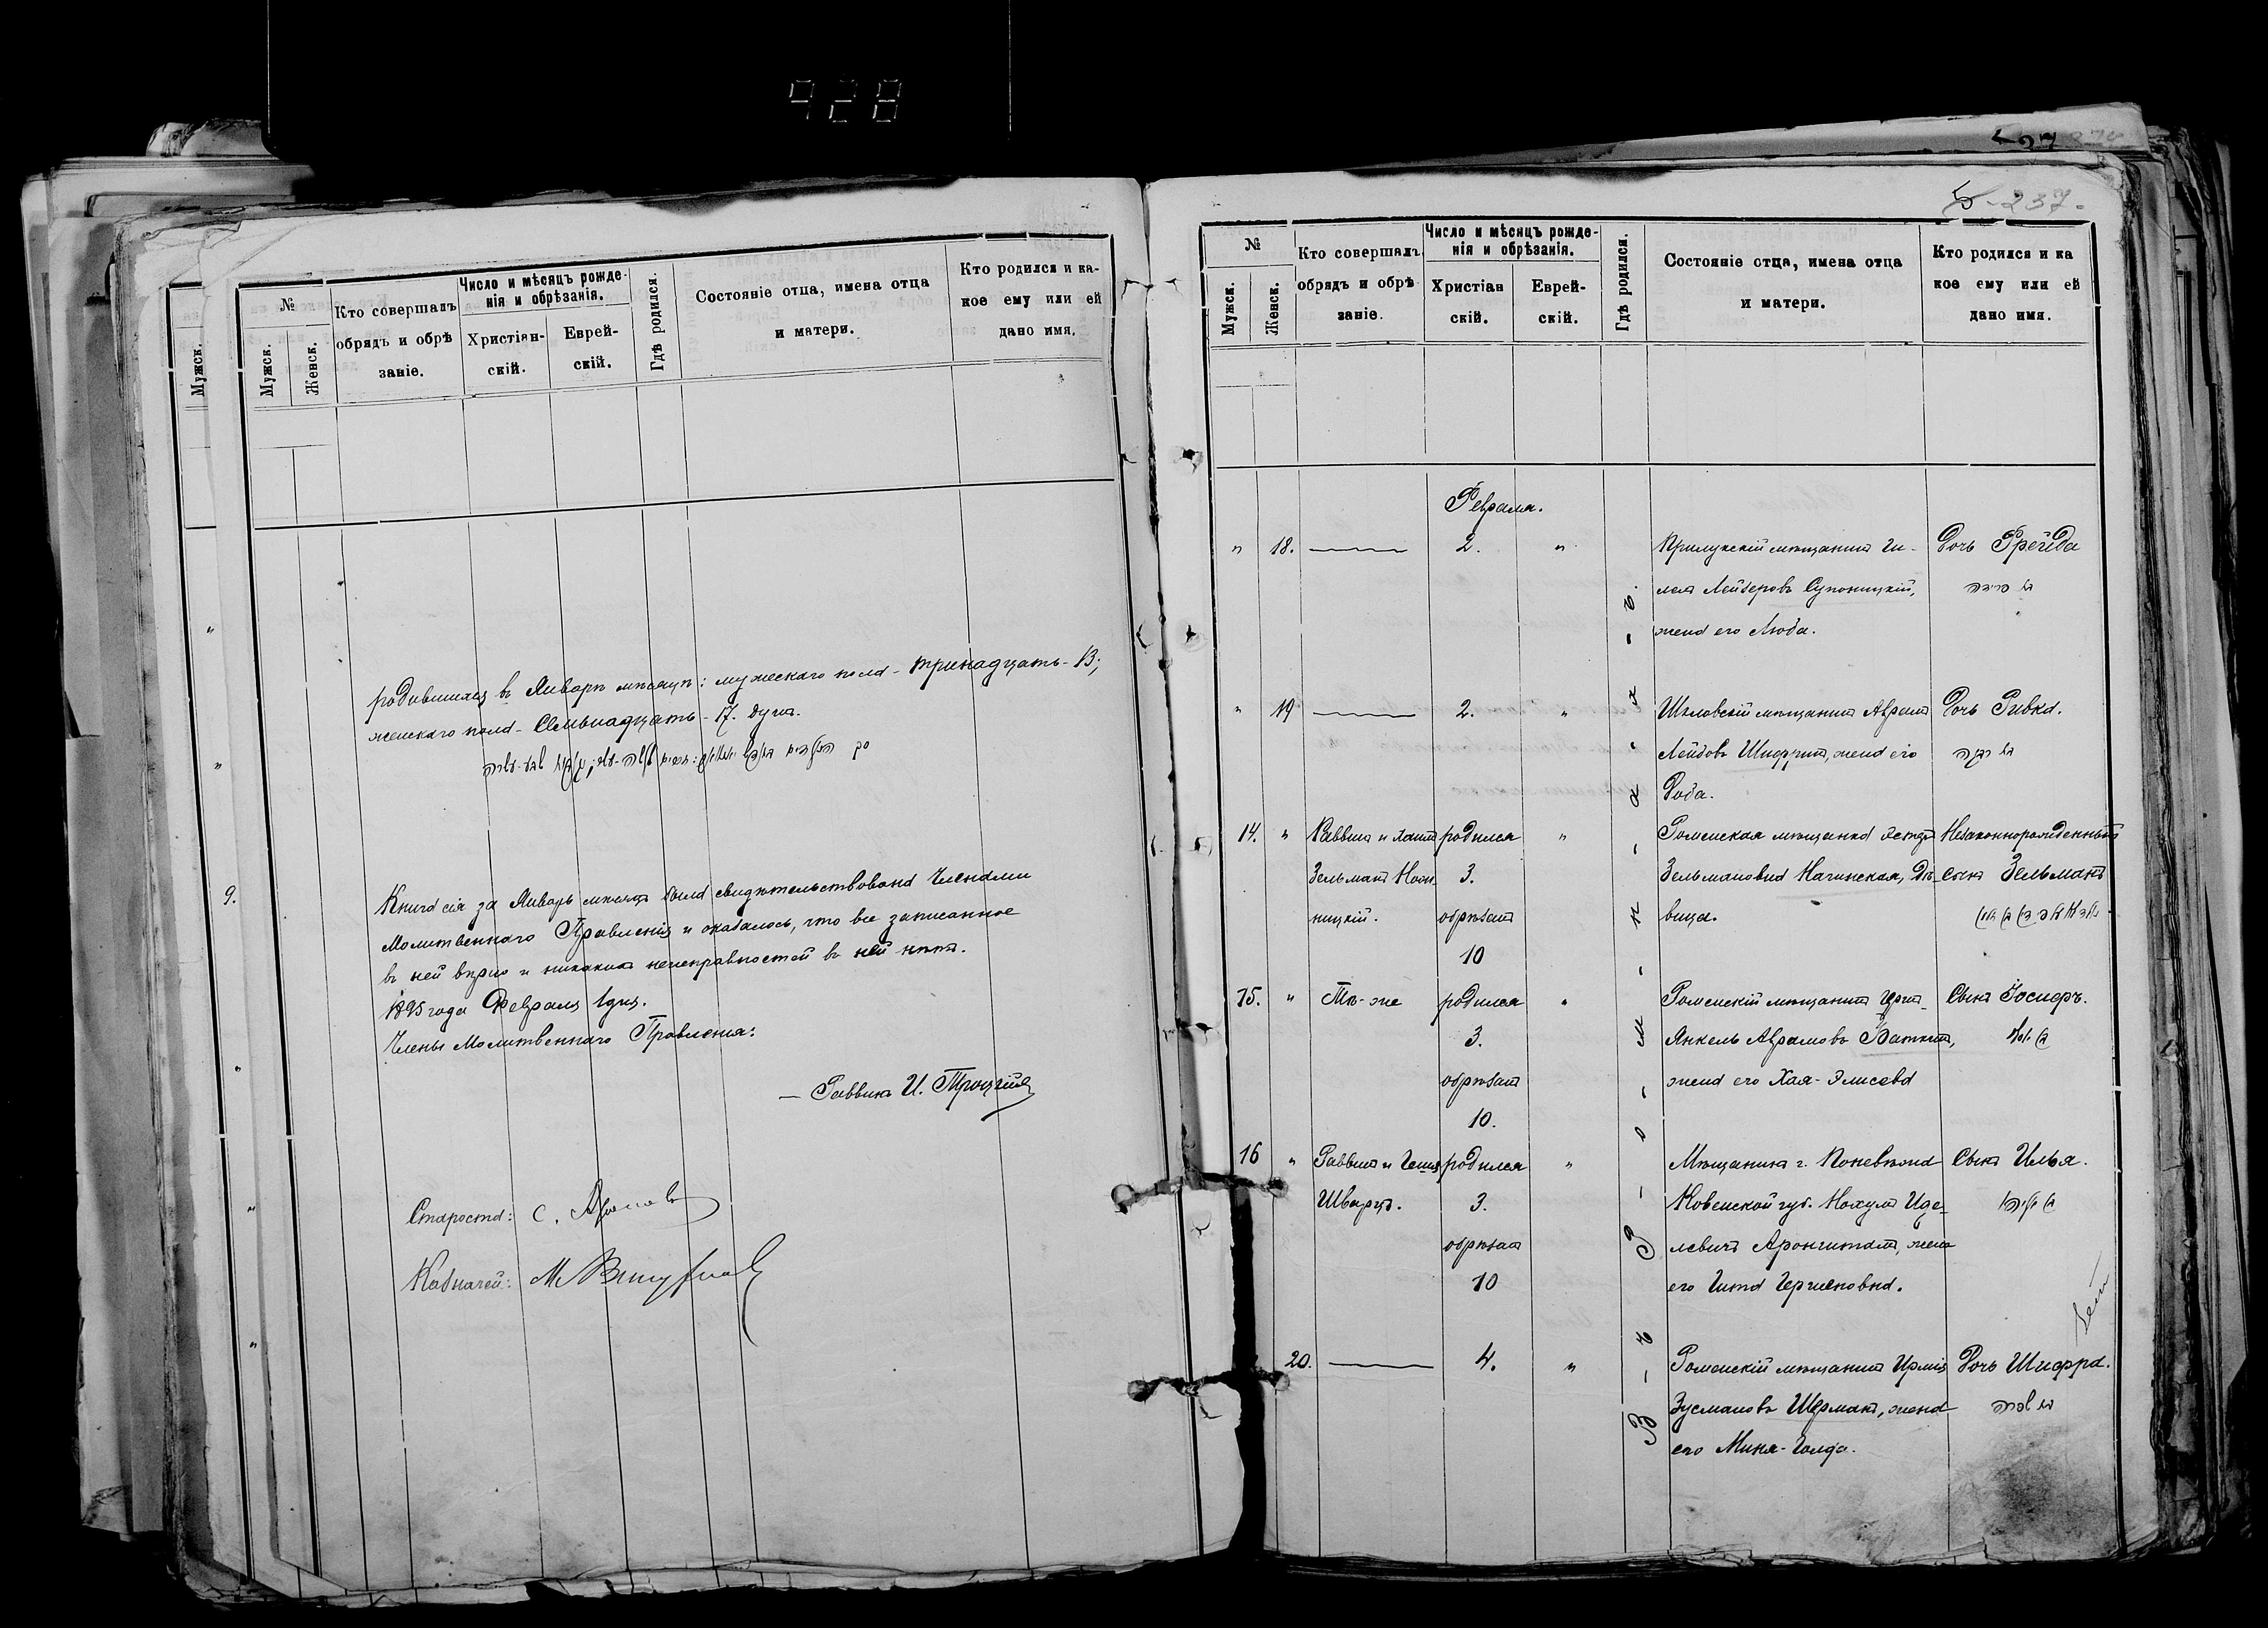 428
27 270
5-237.
№
Мужск.
Женск.
Кто совершалъ
обрядъ и обрѣ
заніе.
Число и мѣсяцъ рожде-
нія и обрѣзанія.
Христіан-
скій.
Еврей-
скій.
Гдѣ родился.
Состояніе отца, имена отца
и матери.
Кто родился и ка-
кое ему или ей
дано имя.
Мужск.
9.
родившихся въ Январѣ мѣсяцѣ: мужескаго пола - тринадцать - 13;
женскаго пола - Семьнадцать - 17. душъ.
Книга сія за Январь мѣсяцъ была свидѣтельствована Членами
Молитвеннаго Правленія и оказалось, что все записанное
въ ней вѣрно и никакихъ неисправностей въ ней нѣтъ.
1895 года Февраля 1 дня.
Члены Молитвеннаго Правленія:
— Раввинъ И. Троцкій
Староста: С.
Казначей: М.
№
Мужск.
Женск.
Кто совершалъ
обрядъ и обрѣ
заніе.
Число и мѣсяцъ рожде-
нія и обрѣзанія.
Христіан
скій.
Еврей-
скій.
Гдѣ родился.
Состояніе отца, имена отца
и матери.
Кто родился и ка
кое ему или ей
дано имя.
Февраля.
" 18. 2. " Прилукскій мѣщанинъ Ги-
лель Лейзеровъ Супоницкій,
жена его Люба.
Дочь Фрейда
" 19 2. " Шкловскій мѣщанинъ Абрамъ
Лейбовъ Шифринъ, жена его
Доба.
Дочь Ривка.
בת רבקה
14. " Раввинъ и
Зельманъ
ницкій.
родился
3.
обрѣзанъ
10
" Роменская мѣщанка
Зельмановна Нагинская, дѣ-
вица.
Незаконнорожденный
сынъ Зельманъ
15. " Тѣ-же родился
3.
обрѣзанъ
10.
" Роменскій мѣщанинъ
Янкель Абрамовъ Ваткинъ,
жена его Хая-Элисева
Сынъ Іосифъ.
16 " Раввинъ и
Шварцъ.
родился
3.
обрѣзанъ
10
" Мѣщанинъ г. Поневѣжа
Ковенской губ. Нохумъ Иде-
левичъ Аронгитамъ, жена
его Гита Гершеновна.
Сынъ Илья.
בן אליהו
20. 4. " Роменскій мѣщанинъ
Зусмановъ Шерманъ, жена
его Миня-Голда.
Дочь Шифра.
בת שפרה